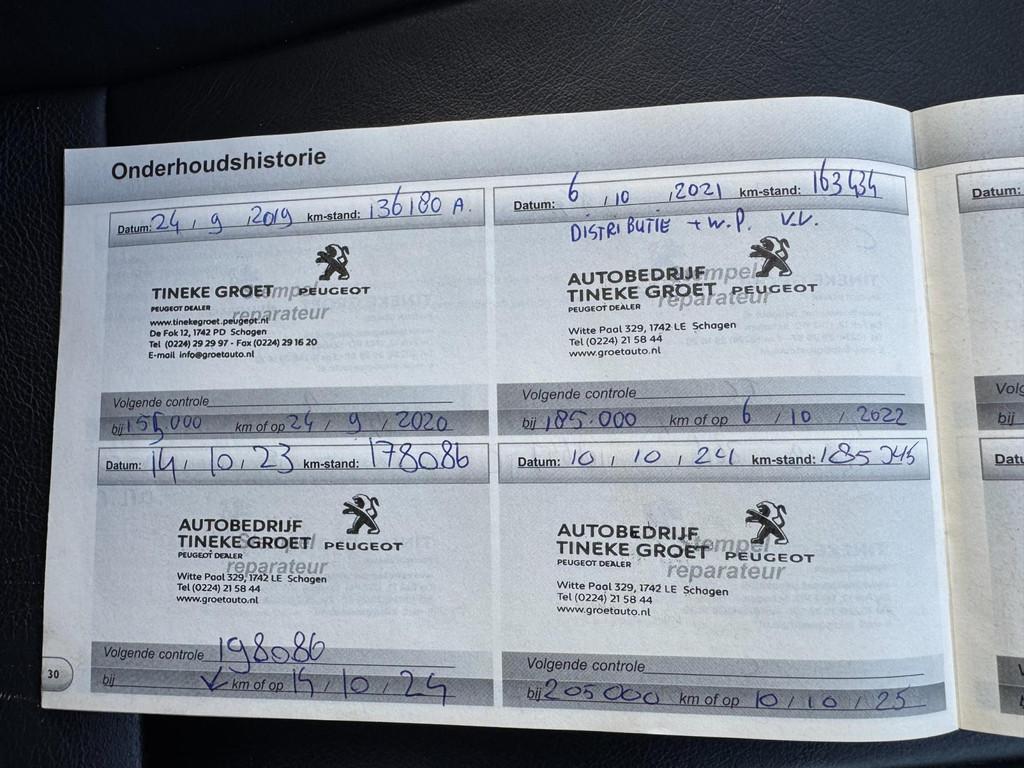 Onderhoudshistorie
Datum: 24 / 9 / 2019 km-stand: 136180 A.
TINEKE GROET PEUGEOT
PEUGEOT DEALER
reparateur
www.tinekegroet.peugeot.nl
De Fok 12, 1742 PD Schagen
Tel (0224) 29 29 97 - Fax (0224) 29 16 20
E-mail info@groetauto.nl
Volgende controle
bij 155000 km of op 24 / 9 / 2020
Datum: 6 / 10 / 2021 km-stand: 163434
DISTRIBUTIE + W.P. V.V.
AUTOBEDRIJF Stempel
TINEKE GROET PEUGEOT
PEUGEOT DEALER reparateur
Witte Paal 329, 1742 LE Schagen
Tel (0224) 21 58 44
www.groetauto.nl
Volgende controle
bij 185.000 km of op 6 / 10 / 2022
Datum: 14 / 10 / 23 km-stand: 178086
AUTOBEDRIJF
TINEKE GROET Stempel PEUGEOT
PEUGEOT DEALER reparateur
Witte Paal 329, 1742 LE Schagen
Tel (0224) 21 58 44
www.groetauto.nl
Volgende controle 198086
bij km of op 14 / 10 / 24
Datum: 10 / 10 / 24 km-stand: 185345
AUTOBEDRIJF
TINEKE GROET Stempel PEUGEOT
PEUGEOT DEALER reparateur
Witte Paal 329, 1742 LE Schagen
Tel (0224) 21 58 44
www.groetauto.nl
Volgende controle
bij 205000 km of op 10 / 10 / 25
30
Datum:
bij